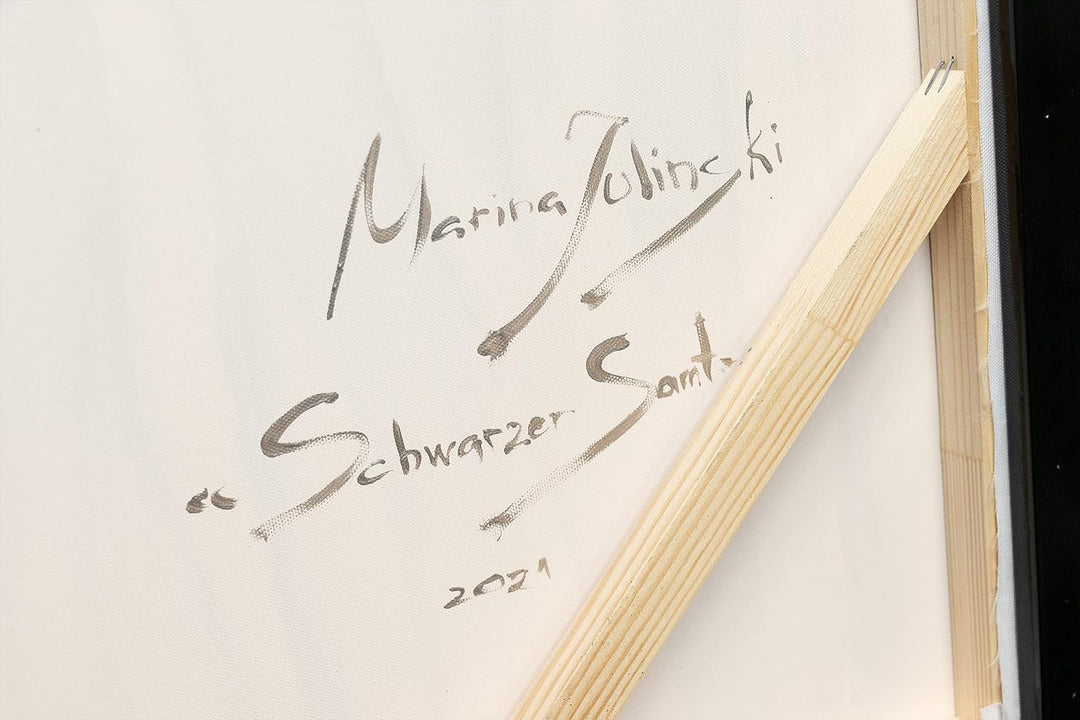 Marina Julinski
“Schwarzer Samt
2021